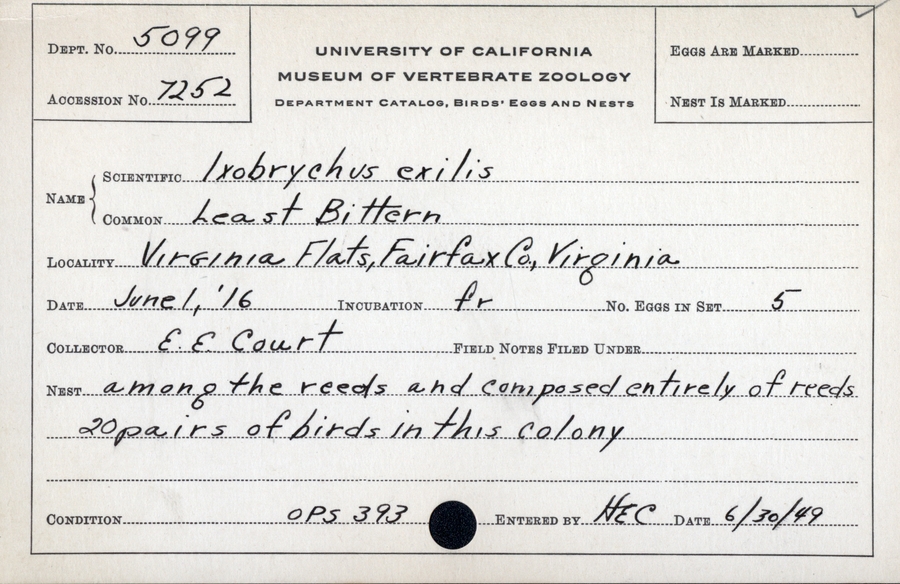 DEPT. No. 5099
ACCESSION No. 7252
UNIVERSITY OF CALIFORNIA
MUSEUM OF VERTEBRATE ZOOLOGY
DEPARTMENT CATALOG, BIRDS' EGGS AND NESTS
EGGS ARE MARKED
NEST IS MARKED
NAME
SCIENTIFIC Ixobrychus exilis
COMMON Least Bittern
LOCALITY Virginia Flats, Fairfax Co., Virginia
DATE June 1, '16 INCUBATION fr No. EGGS IN SET 5
COLLECTOR E. E. Court FIELD NOTES FILED UNDER
NEST among the reeds and composed entirely of reeds
20 pairs of birds in this colony
CONDITION OPS 393 ENTERED BY HEC DATE 6/30/49